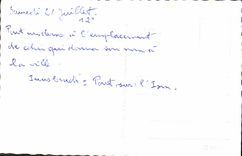 Samedi 21 Juillet.
12°
Pont moderne à l'emplacement
de celui qui donna son nom à
la ville.
Innsbruck = Pont sur l'Inn.